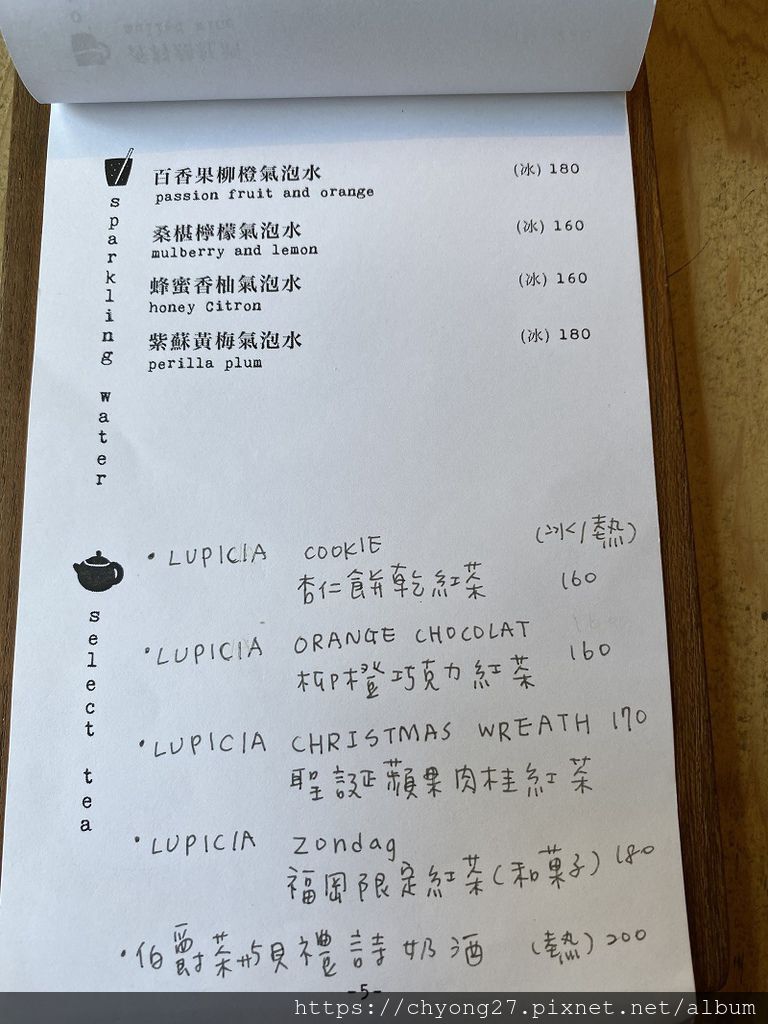 sparkling water
百香果柳橙氣泡水 (冰) 180
passion fruit and orange
桑椹檸檬氣泡水 (冰) 160
mulberry and lemon
蜂蜜香柚氣泡水 (冰) 160
honey Citron
紫蘇黃梅氣泡水 (冰) 180
perilla plum
select tea
• LUPICIA COOKIE (冰/熱)
杏仁餅乾紅茶 160
• LUPICIA ORANGE CHOCOLAT 160
柳橙巧克力紅茶
• LUPICIA CHRISTMAS WREATH 170
聖誕蘋果肉桂紅茶
• LUPICIA Zondag
福岡限定紅茶(和菓子) 180
• 伯爵茶貝禮詩奶酒 (熱) 200
-5-
https://chyong27.pixnet.net/album